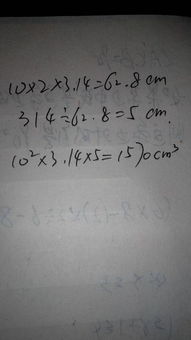 10×2×3.14=62.8cm
314÷62.8=5cm.
10²×3.14×5=1570cm³